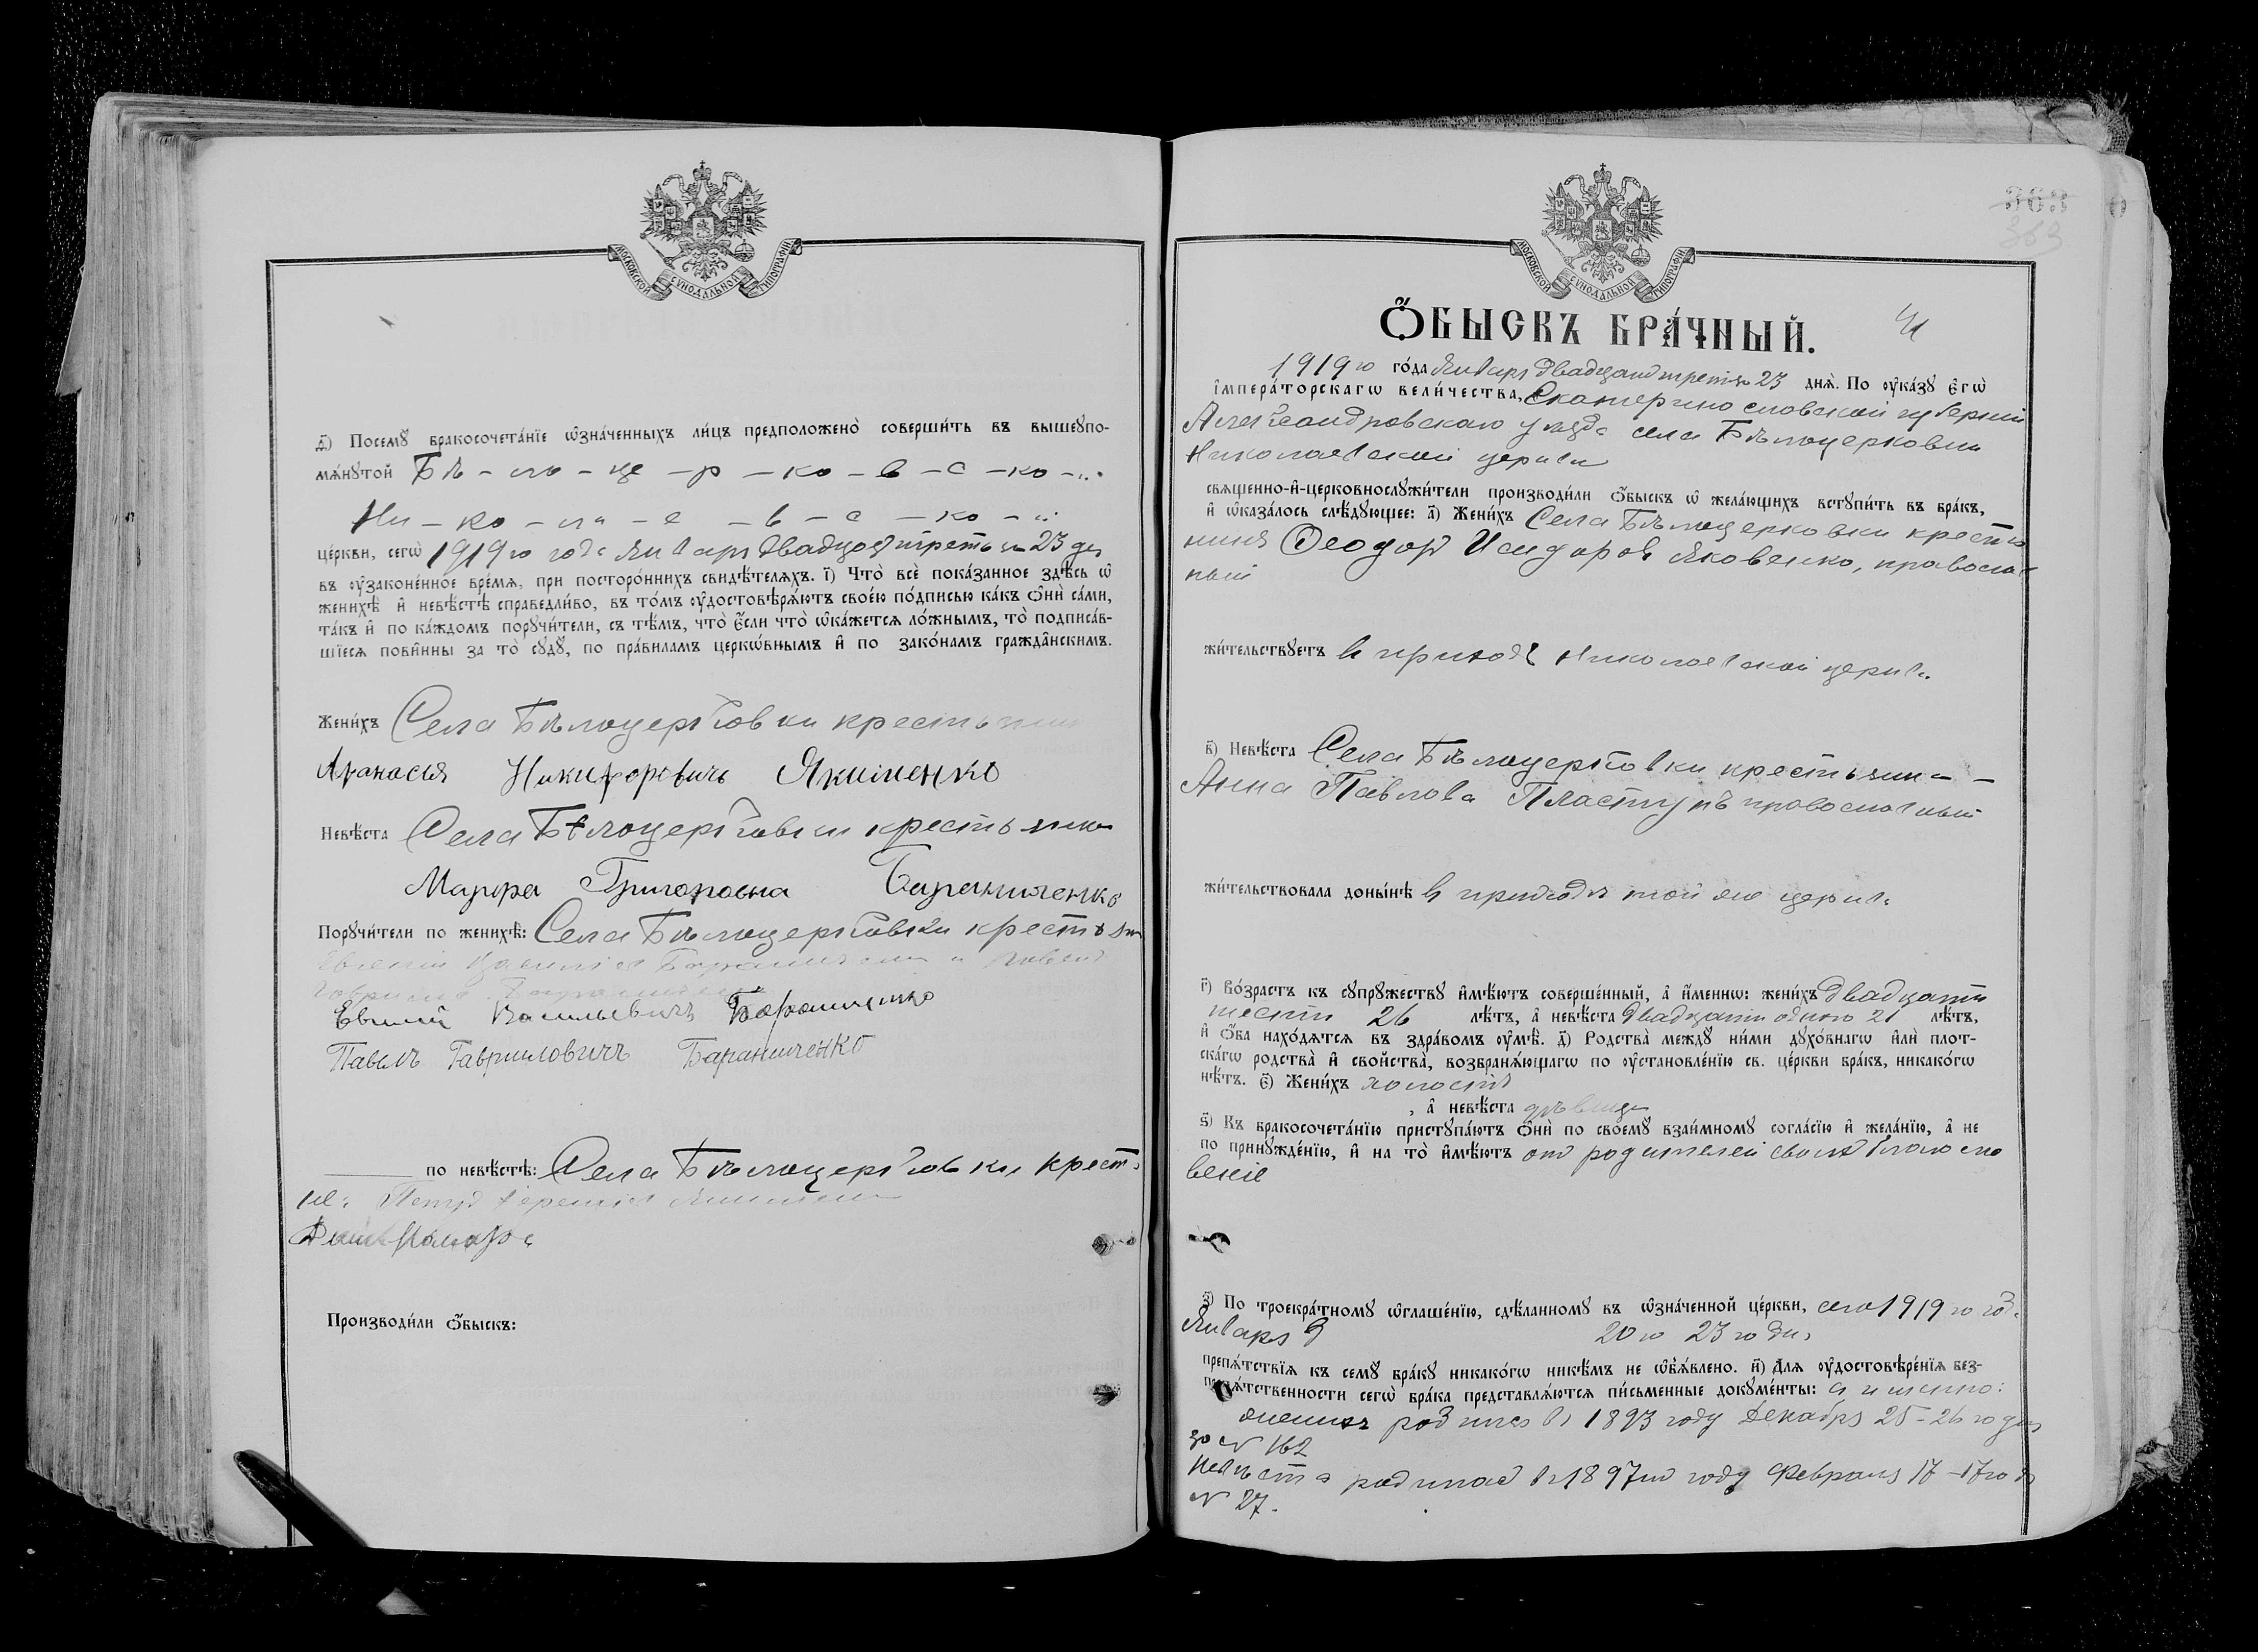 МОСКОВСКОЙ СУНОДАЛЬНОЙ ТИПОГРАФІИ
д҃) Посемꙋ̀ бракосочета́нїе ѡ҆зна́ченныхъ ли́цъ предположено̀ соверши́ть въ вышеꙋпо-
мѧ́нꙋтой Бѣ - ло - це - р - ко - в - с - ко - й
Ни - ко - ла - е - в - с - ко - й
це́ркви, сегѡ̀ 1919 го года Января двадцать третьяго 23 дня
въ ᲂу҆зако́не́нное вре́мѧ, при посторо́ннихъ свидѣ́телѧхъ. і҃) Что̀ всѐ пока́занное здѣ́сь ѡ҆
женихѣ̀ и҆ невѣ́стѣ справедли́во, въ то́мъ ᲂу҆достовѣрѧ́ютъ свое́ю по́дписью ка́къ ѻ҆нѝ са́ми,
та́къ и҆ по ка́ждомъ порꙋчи́тели, съ тѣ́мъ, что̀ є҆́сли что̀ ѡ҆ка́жетсѧ ло́жнымъ, то̀ подписа́в-
шїесѧ пови́нны за то̀ сꙋдꙋ̀, по пра́виламъ церкѡ́внымъ и҆ по зако́намъ гражда́нскимъ.
Жени́хъ Села Бѣлоцерковки крестьянин
Афанасія Никифоровичъ Якименко
Невѣ́ста Села Бѣлоцерковки крестьянка
Марфа Григоровна Бараниченко
Порꙋчи́тели по женихѣ̀: Села Бѣлоцерковки крестьян
Евгеній Васильевичъ Бараниченко
Павелъ Гавриловичъ Бараниченко
по невѣ́стѣ: Села Бѣлоцерковки крест
не: Петръ
Производи́ли ѻ҆́быскъ:
МОСКОВСКОЙ СУНОДАЛЬНОЙ ТИПОГРАФІИ
363
363
Ѻ҆́БЫСКЪ БРА́ЧНЫЙ.
1919 го го́да Января двадцать третьяго 23 днѧ̀. По ᲂу҆ка́зꙋ Є҆гѡ̀
і҆мпера́торскагѡ вели́чества, Екатеринославской губерніи
Александровскаго уѣзда села Бѣлоцерковки
Николаевской церкви
свѧще́нно-и҆-церковнослꙋжи́тели производи́ли ѻ҆́быскъ ѡ҆ жела́ющихъ встꙋпи́ть въ бра́къ,
и҆ ѡ҆каза́лось слѣ́дꙋющее: а҃) Жени́хъ Села Бѣлоцерковки крестья
нинъ Ѳеодоръ Исидоровъ Яковенко, православ
ный
жи́тельствꙋетъ въ приходѣ Николаевской церкви
в҃) Невѣ́ста Села Бѣлоцерковки крестьянка -
Анна Павлова Пластунъ православный
жи́тельствовала доны́нѣ въ приходѣ той же церкви
г҃) Во́зрастъ къ сꙋпрꙋ́жествꙋ и҆мѣ́ютъ соверше́нный, а҆ и҆́меннѡ: жени́хъ двадцать
шесть 26 лѣ́тъ, а҆ невѣ́ста двадцать одного 21 лѣ́тъ,
и҆ ѻ҆́ба нахо́дѧтсѧ въ здра́вомъ ᲂу҆мѣ̀. д҃) Родства̀ междꙋ̀ ни́ми дꙋхо́внагѡ и҆лѝ плот-
ска́гѡ родства̀ и҆ сво́йства̀, возбранѧ́ющагѡ по ᲂу҆становле́нїю св. це́ркви бра́къ, никако́гѡ
нѣ́тъ. є҃) Жени́хъ холостъ
, а҆ невѣ́ста дѣвица
ѕ҃) Къ бракосочета́нїю пристꙋпа́ютъ ѻ҆нѝ по своемꙋ̀ взаи́мномꙋ согла́сїю и҆ жела́нїю, а҆ не
по принꙋжде́нїю, и҆ на то̀ и҆мѣ́ютъ отъ родителей своихъ благосло
веніе
з҃) По троекра́тномꙋ ѡ҆глаше́нїю, сдѣ́ланномꙋ въ ѡ҆зна́ченной це́ркви, сего 1919 го года
Января 20 го 23 го дня
препѧ́тствїѧ къ семꙋ̀ бра́кꙋ никако́гѡ никѣ́мъ не ѡ҆б̾ѧ́влено. и҃) Длѧ ᲂу҆достовѣре́нїѧ без-
препѧ́тственности сегѡ̀ бра́ка представлѧ́ютсѧ пи́сьменные докꙋме́нты: а именно:
женихъ родился въ 1893 году Декабря 25-26 го дня
за N 162
Невѣста родилась въ 1897 году Февраля 17-17 го
N 27.